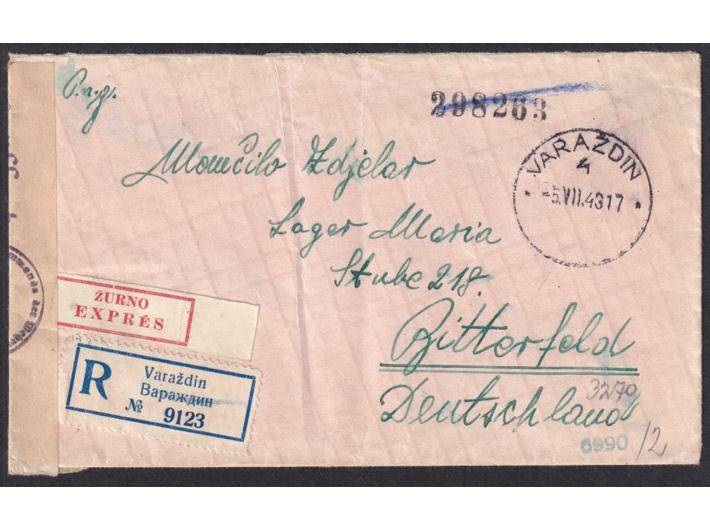 P. n. g.
298263
Momčilo Zdjelar
Lager Maria
Stube 218.
Bitterfeld
Deutschland
VARAŽDIN
4
-5.VII.43 17
ŽURNO
EXPRÈS
R
Varaždin
Вараждин
№ 9123
3270
6990
/2